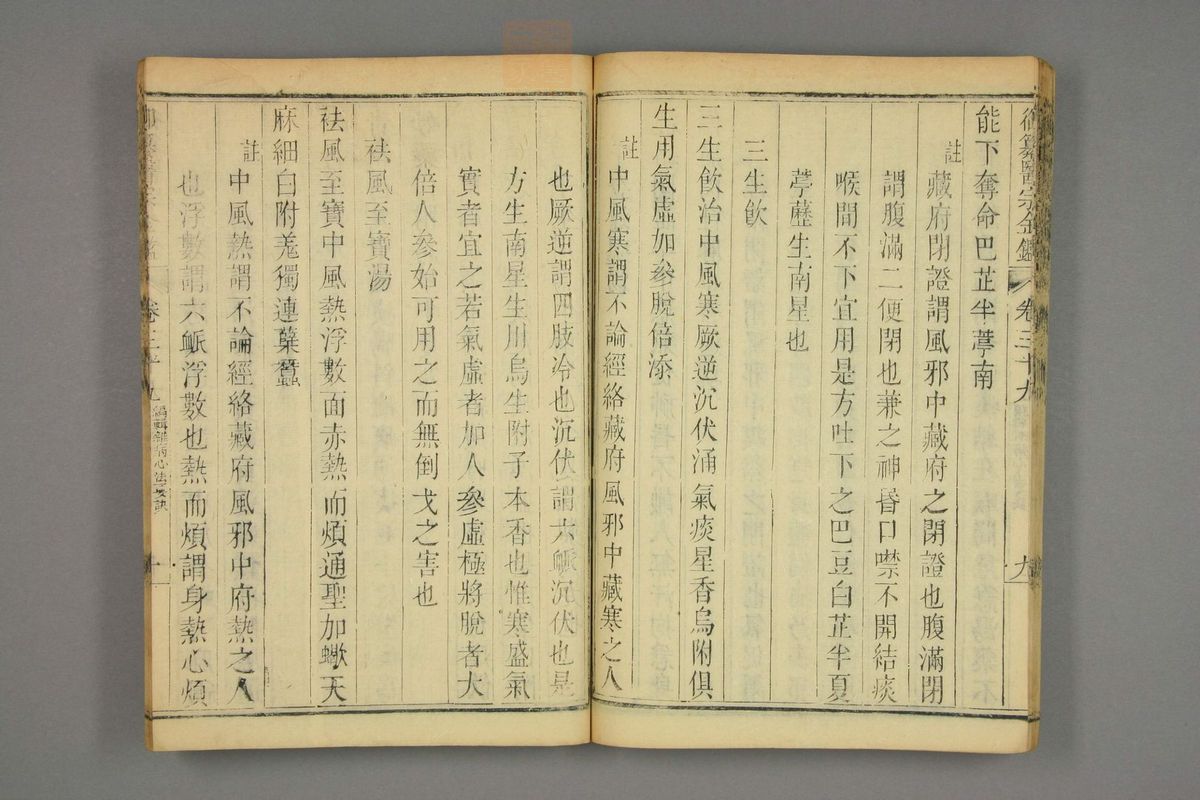 御纂醫宗金鑑 卷三十九 九
能下奪命巴芷半葶南
註
藏府閉證謂風邪中藏府之閉證也腹滿閉
謂腹滿二便閉也兼之神昏口噤不開結痰
喉間不下宜用是方吐下之巴豆白芷半夏
葶藶生南星也
三生飲
三生飲治中風寒厥逆沉伏涌氣痰星香烏附俱
生用氣虛加參脫倍添
註
中風寒謂不論經絡藏府風邪中藏寒之人
也厥逆謂四肢冷也沉伏謂六脈沉伏也是
方生南星生川烏生附子本香也惟寒盛氣
實者宜之若氣虛者加人參虛極將脫者大
倍人參始可用之而無倒戈之害也
祛風至寶湯
祛風至寶中風熱浮數面赤熱而煩通聖加蠍天
麻細白附羗獨連蘗蠶
註
中風熱謂不論經絡藏府風邪中府熱之人
也浮數謂六脈浮數也熱而煩謂身熱心煩
卷三十九 編輯雜病心法要訣 十